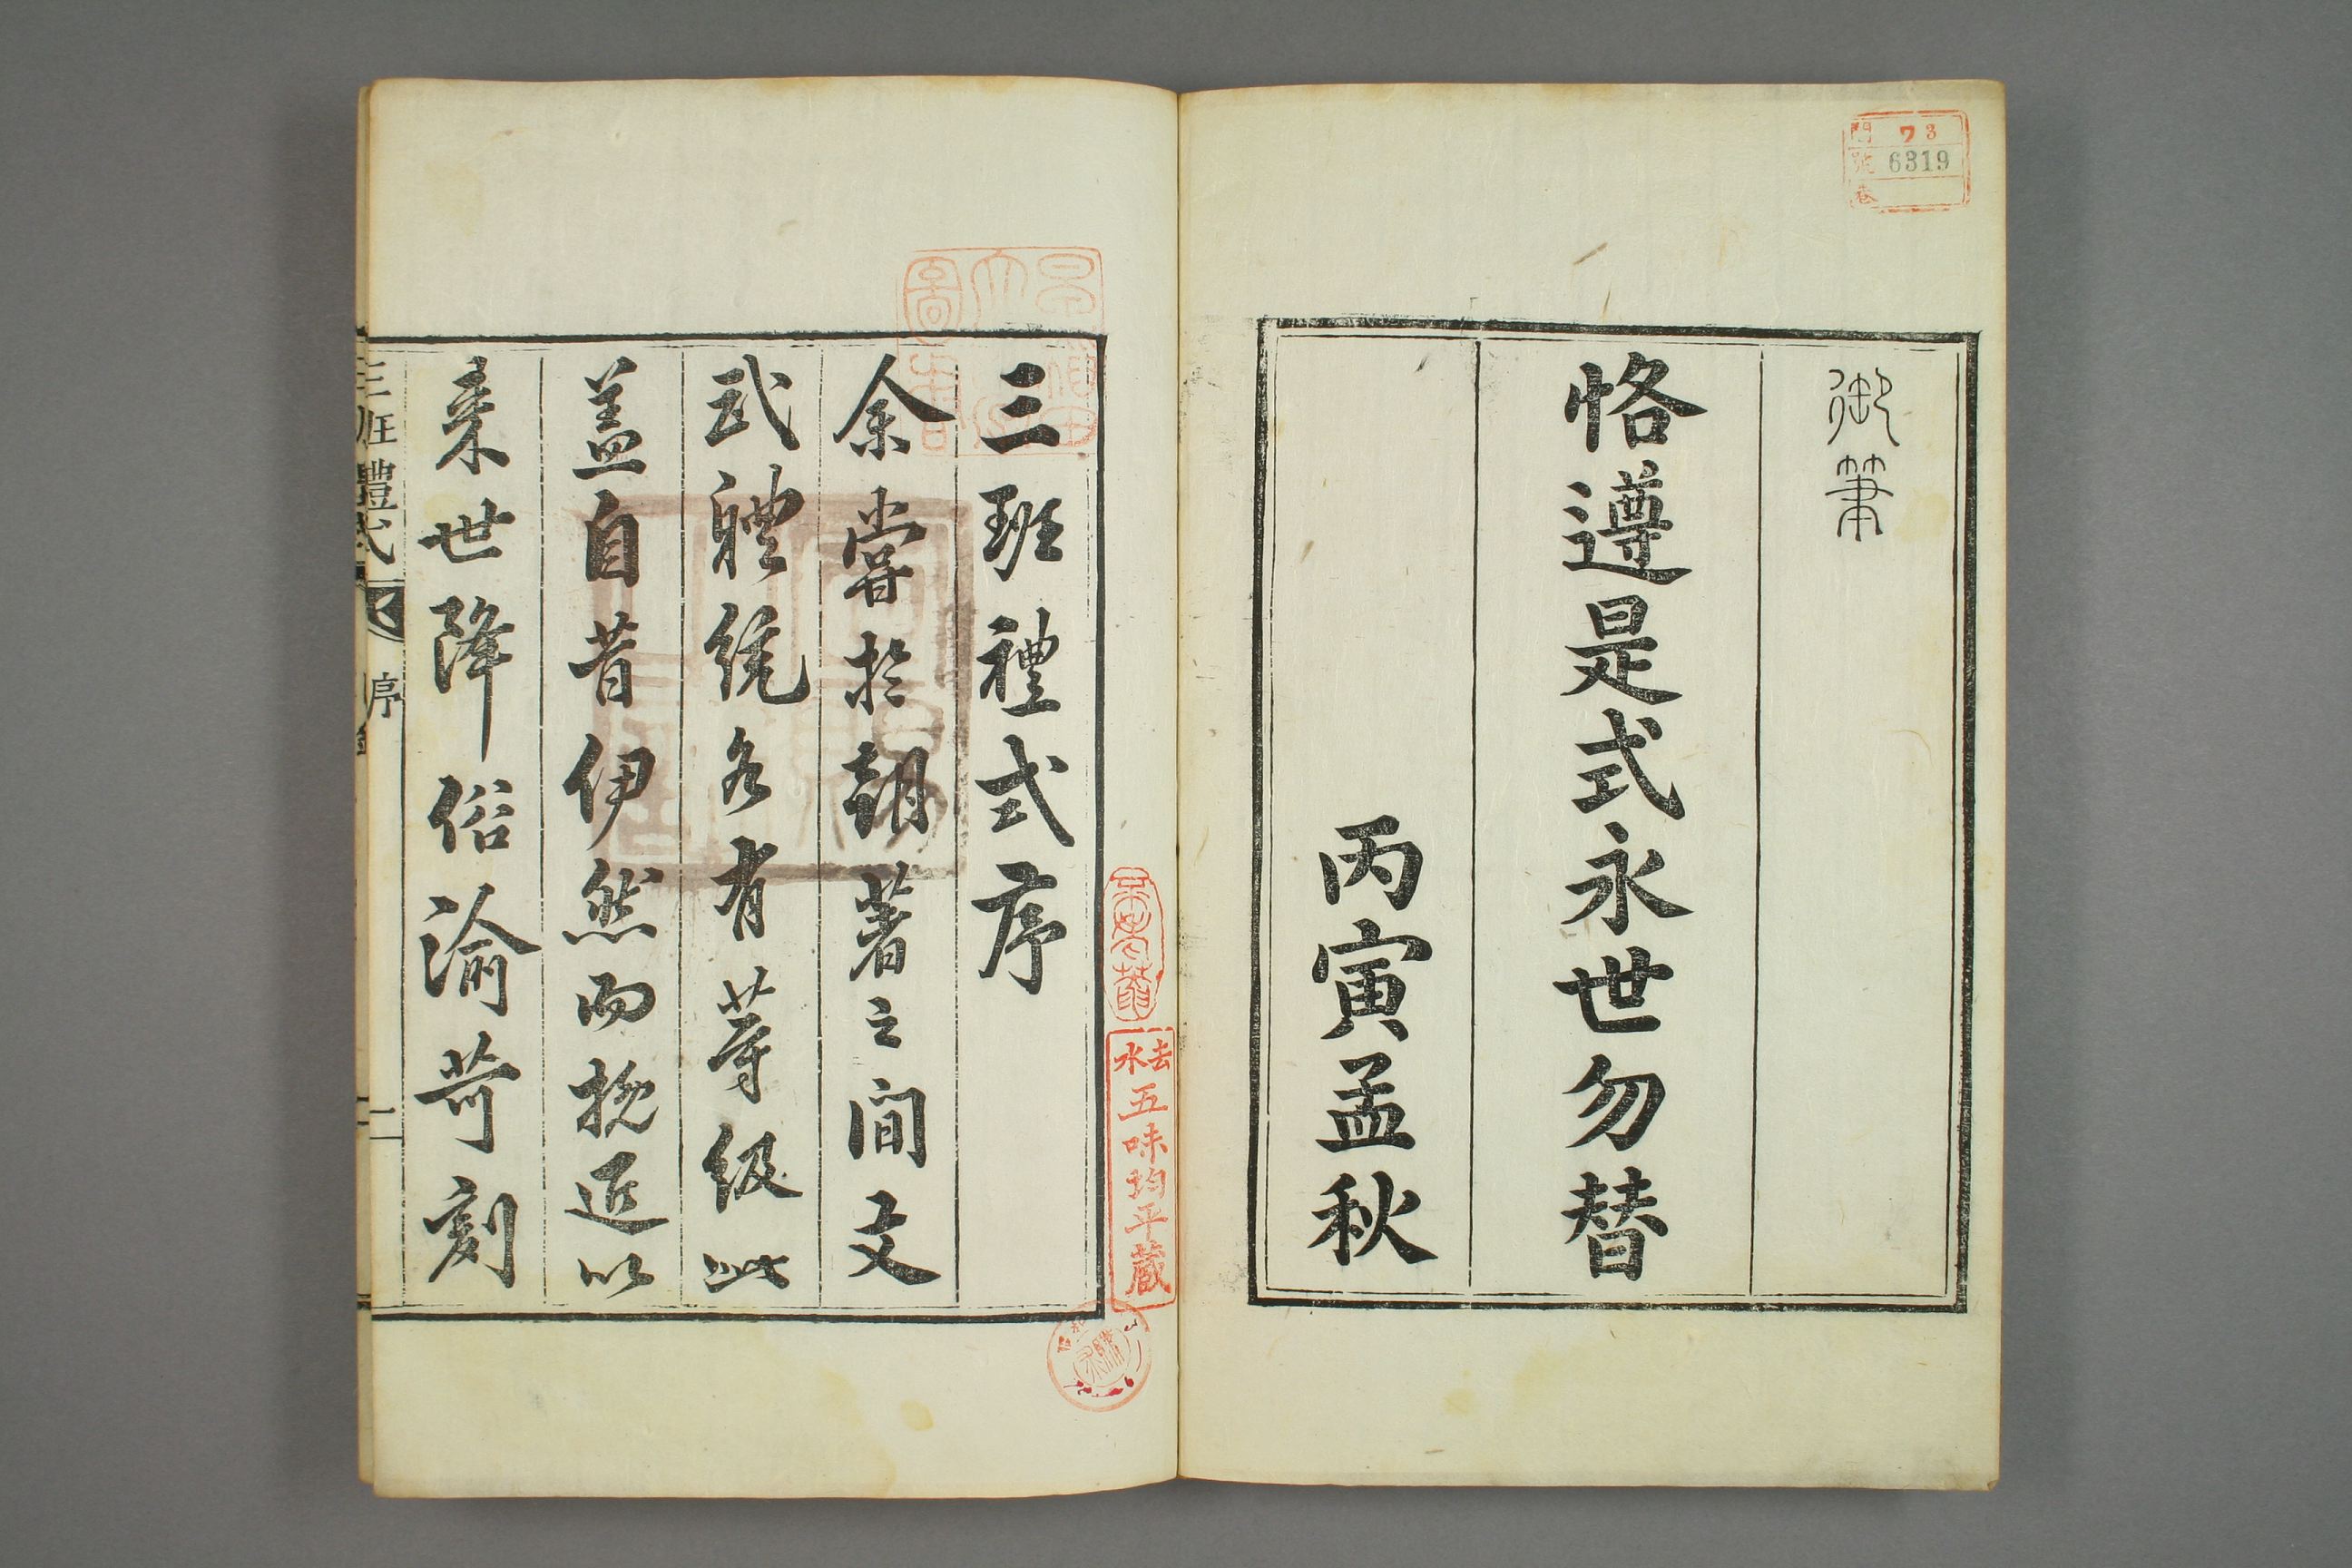 御筆
恪遵是式永世勿替
丙寅孟秋
門 ワ3
號 6319
卷
三班禮式序
余嘗於朝著之間文
武體統各有等級此
盖自昔伊然而挽近以
來世降俗渝苛刻
三班禮式 序 一
去水五味均平蔵